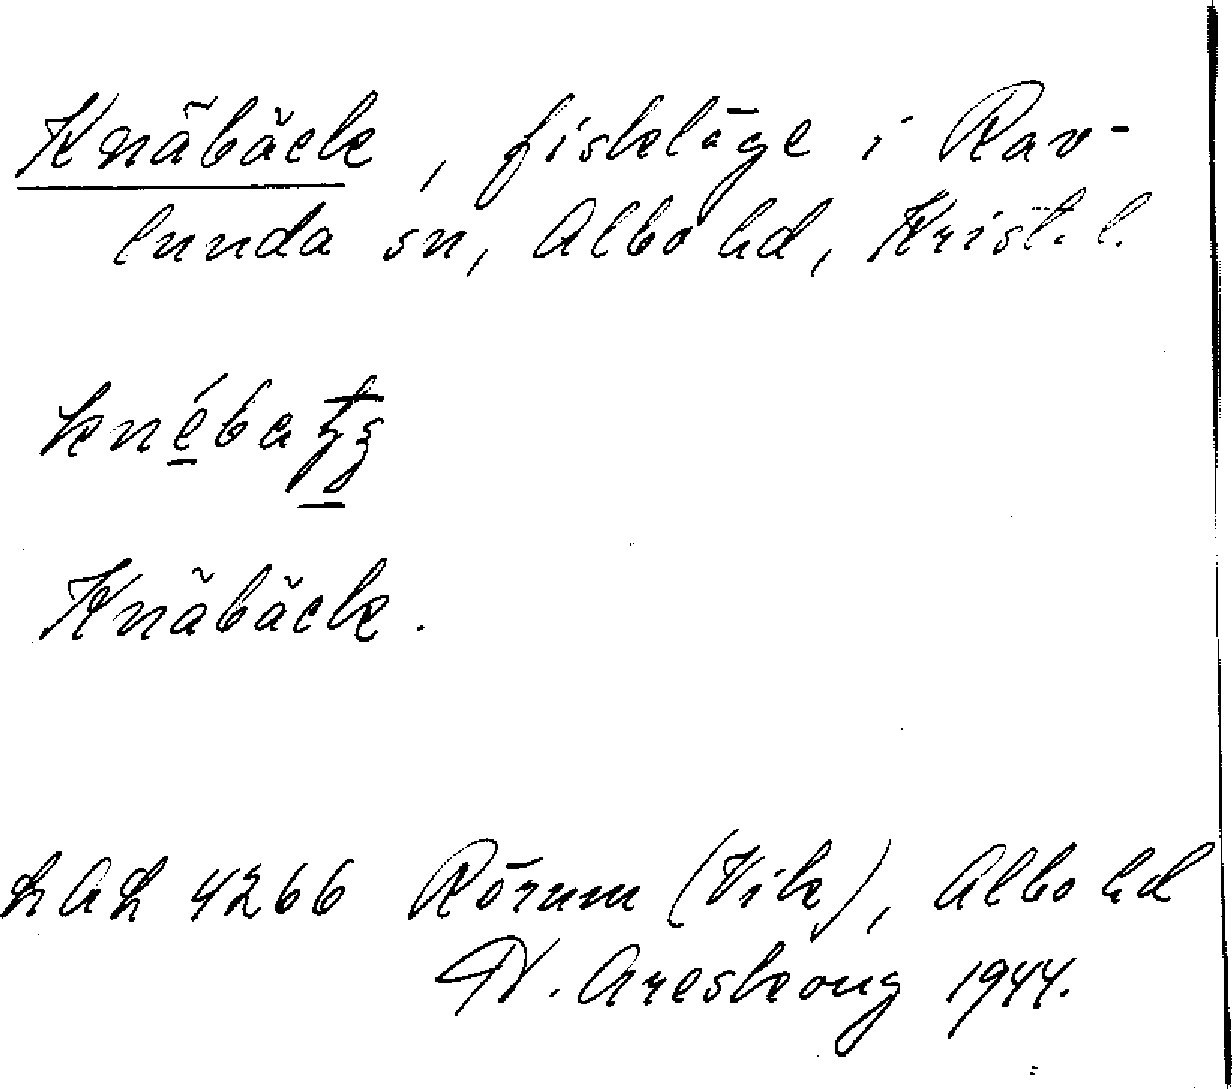 Knäbäck, fiskläge i Rav-
lunda sn, Albo hd, Krist. l.
Knäbäck.
LAL 4266 Rörum (Vik), Albo hd
W. Areskoug 1944.